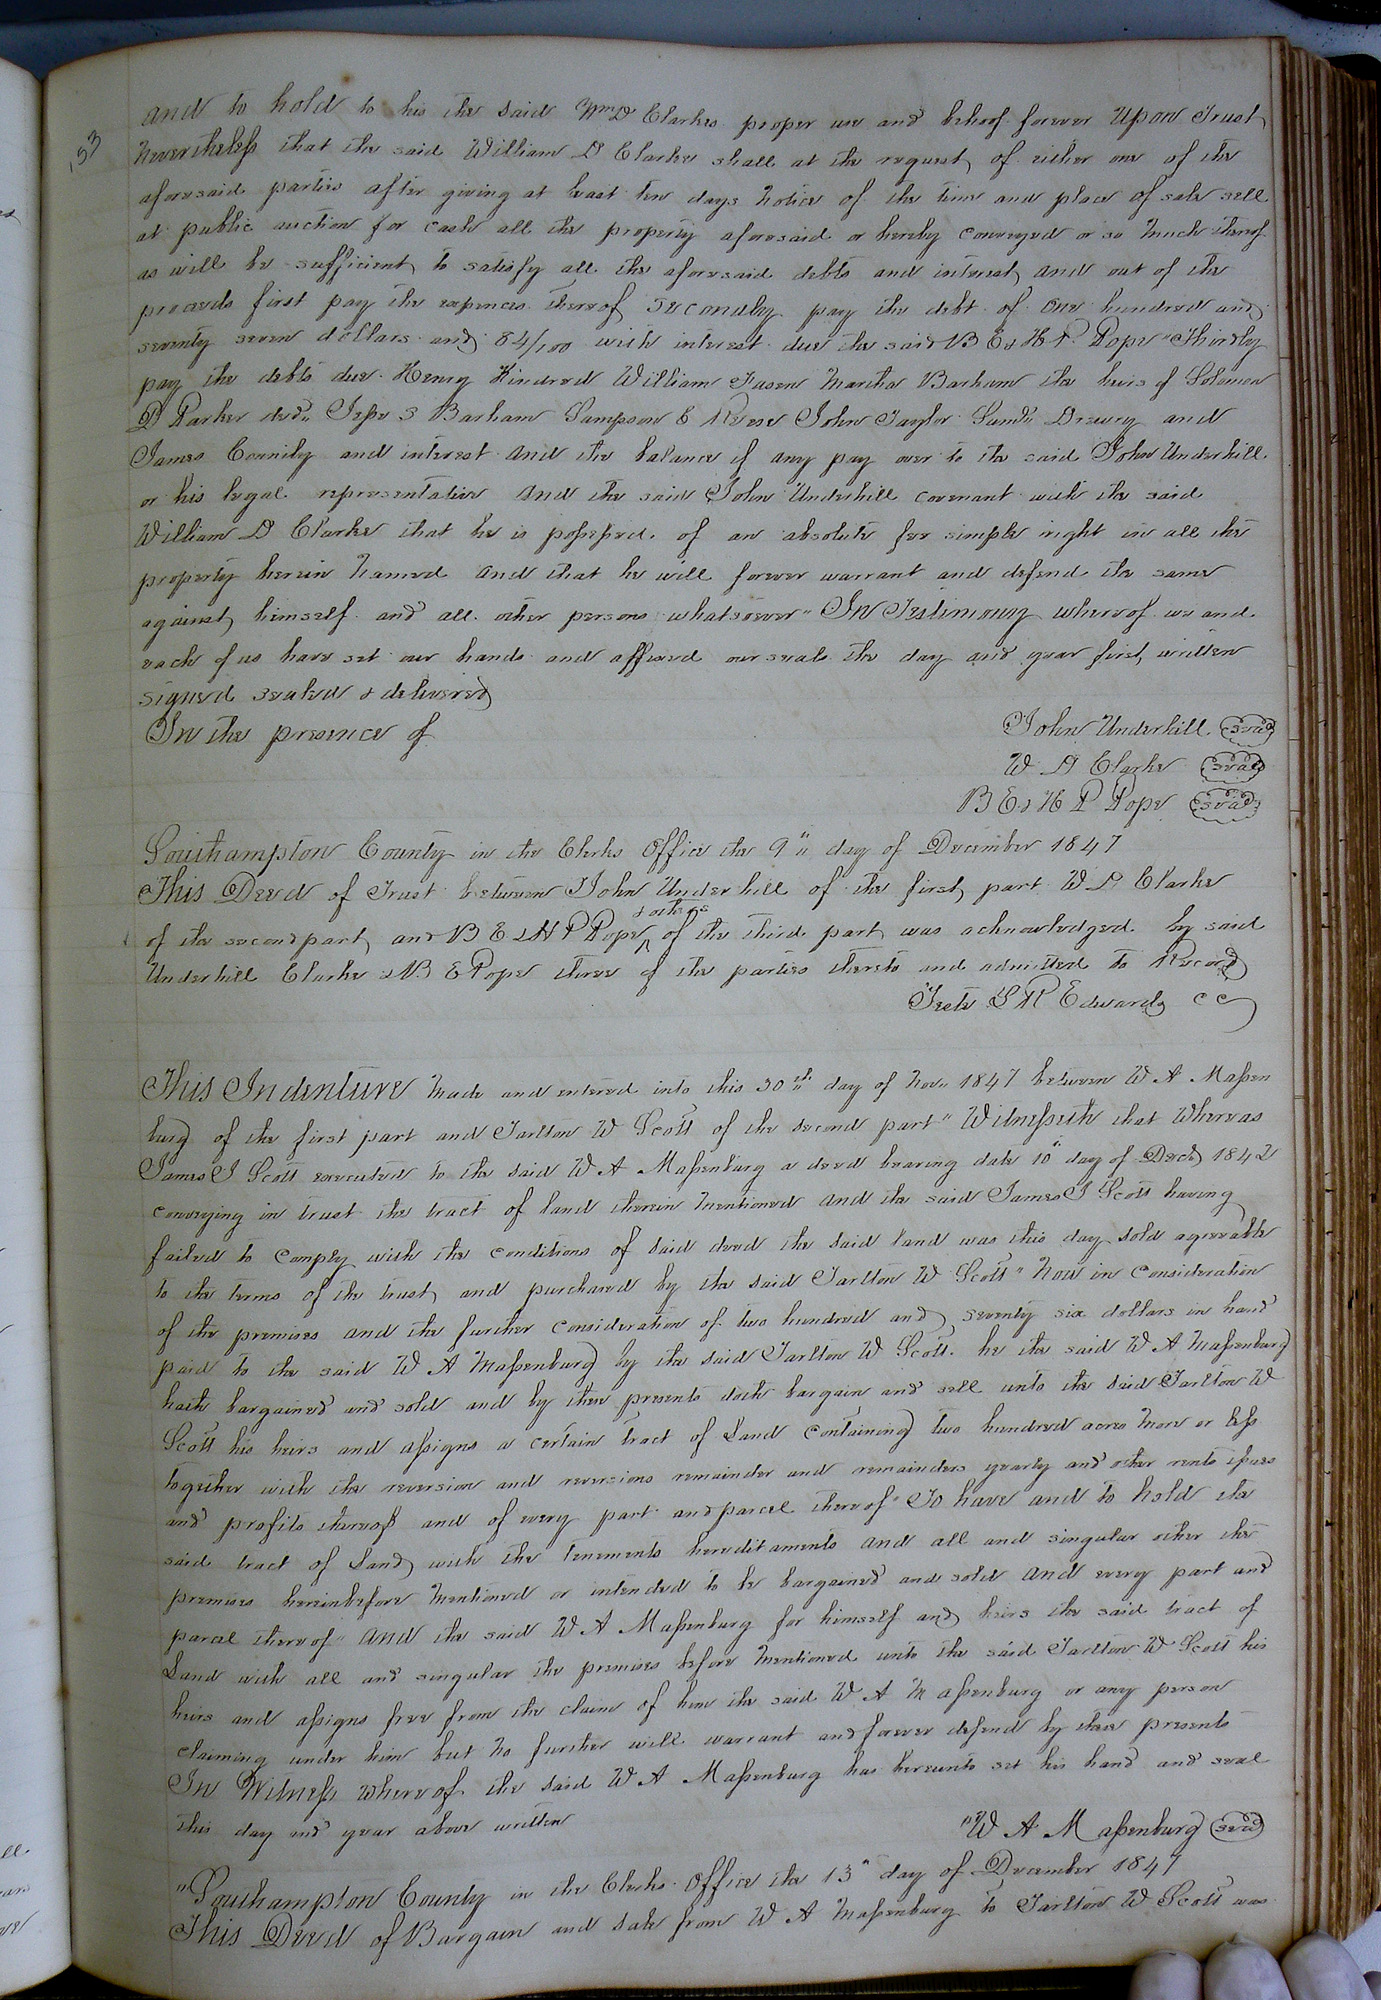 153
and to hold to his the said Wm D Clarkes proper use and behoof forever Upon Trust
Nevertheless that the said William D Clarke shall at the request of either one of the
aforesaid parties after giving at least ten days notice of the time and place of sale sell
at public auction for cash all the property aforesaid or hereby conveyed or so much thereof
as will be sufficient to satisfy all the aforesaid debts and interest and out of the
proceeds first pay the expences thereof secondly pay the debt of one hundred and
seventy seven dollars and 84/100 with interest due the said B E & H P Pope "Thirdly
pay the debts due Henry Kindred William Martha Barham the heirs of Solomon
D Parker decd" Jesse S Barham Sampson C Reese John Taylor Saml" Drewry and
James and interest And the balance if any pay over to the said John Underhill
or his legal representative And the said John Underhill covenant with the said
William D Clarke that he is possessed of an absolute fee simple right in all the
property herein named and that he will forever warrant and defend the same
against himself and all other persons whatsoever" In Testimony whereof we and
each of us have set our hands and affixed our seals the day and year first written
signed sealed & delivered
In the presence of
John Underhill seal
W D Clarke seal
B E & H P Pope seal
Southampton County in the Clerks Office the 9" day of December 1847
This Deed of Trust between John Underhill of the first part W D Clarke
& others
of the second part and B E & H P Pope ^ of the third part was acknowledged by said
Underhill Clarke & B E Pope three of the parties thereto and admitted to Record
Teste L R Edwards CC
This Indenture Made and entered into this 30th day of Nov" 1847 between W A Massen
burg of the first part and Tarlton W Scott of the second part" Witnesseth that Whereas
James S Scott executed to the said W A Massenburg a deed bearing date 10" day of Decr 1842
conveying in trust the tract of land therein mentioned and the said James S Scott having
failed to comply with the conditions of said deed the said land was this day sold agreeable
to the terms of the trust and purchased by the said Tarlton W Scott" Now in consideration
of the premises and the further consideration of two hundred and seventy six dollars in hand
paid to the said W A Massenburg by the said Tarlton W Scott he the said W A Massenburg
hath bargained and sold and by these presents doth bargain and sell unto the said Tarlton W
Scott his heirs and assigns a certain tract of Land containing two hundred acres more or less
together with the reversion and reversions remainder and remainders yearly and other rents issues
and profits thereof and of every part and parcel thereof" To have and to hold the
said tract of Land with the tenements hereditaments and all and singular other the
premises hereinbefore mentioned or intended to be bargained and sold and every part and
parcel thereof" And the said W A Massenburg for himself and heirs the said tract of
Land with all and singular the premises before mentioned unto the said Tarlton W Scott his
heirs and assigns free from the claim of him the said W A Massenburg or any person
claiming under him but no further will warrant and forever defend by these presents
In Witness whereof the said W A Massenburg has hereunto set his hand and seal
this day and year above written
"W A Massenburg seal
"Southampton County in the Clerks Office the 13" day of December 1847
This Deed of Bargain and Sale from W A Massenburg to Tarlton W Scott was